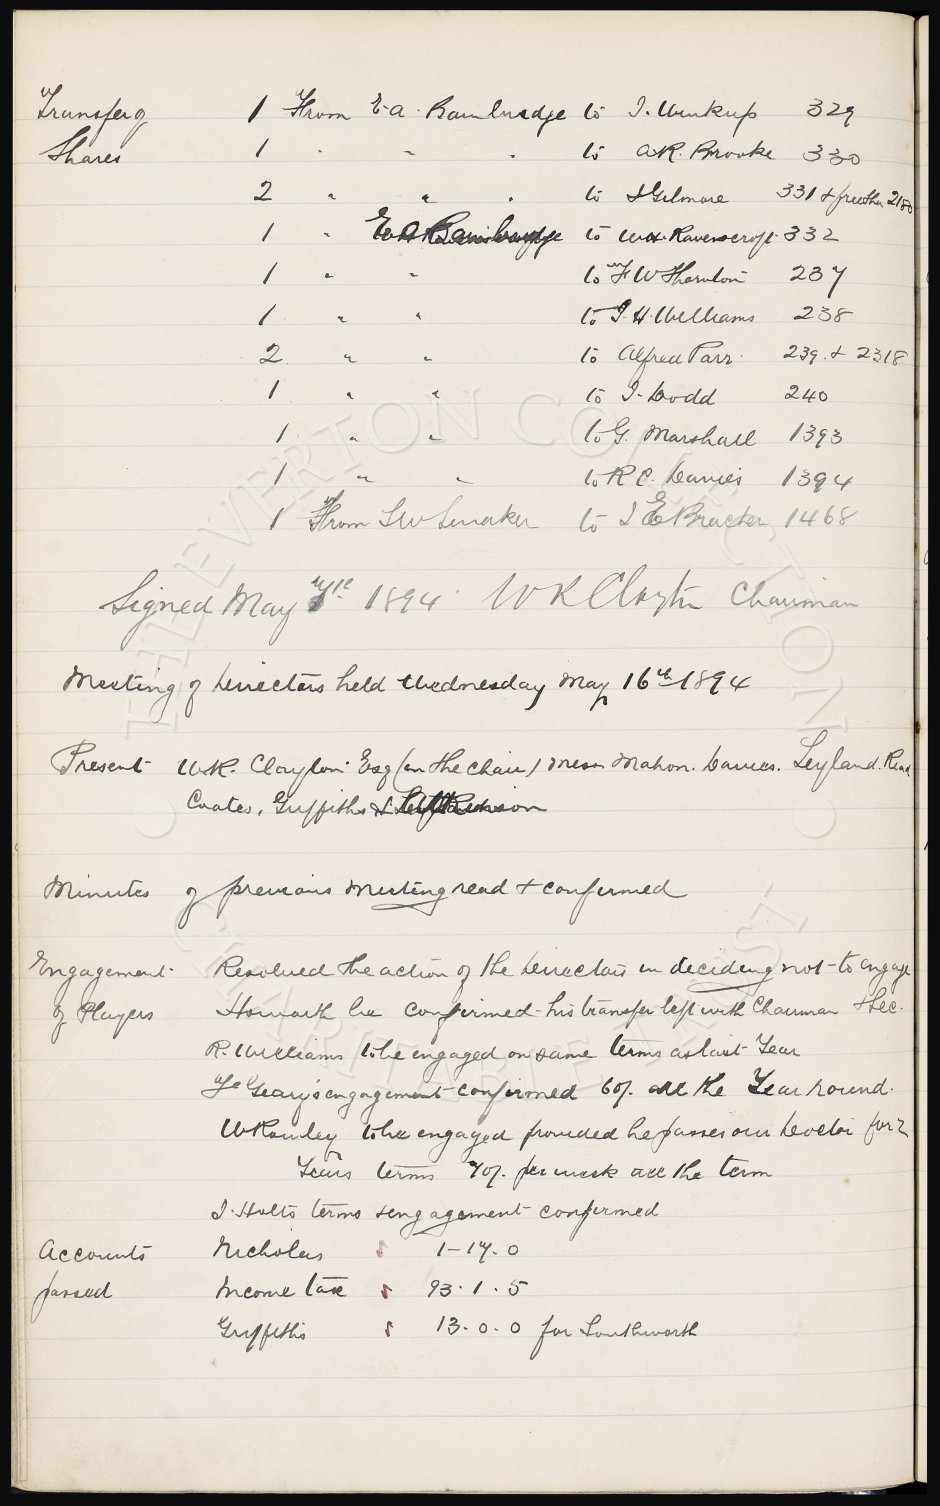 Transfer of 1 From E.A. Bainbridge to J. Winkup 329
Shares 1 " " " to A.R. Brooke 330
2 " " " to J Gilmore 331 & further 2180
1 " E A Bainbridge to W.H. Ravenscroft 332
1 " " to F W Thornton 237
1 " " to J. H. Williams 238
2 " " to Alfred Parr 239 & 2318
1 " " to J. Dodd 240
1 " " to G. Marshall 1393
1 " " to R C. Davies 1394
1 From to J E Bracher 1468
Signed May 1894 W R Clayton Chairman
Meeting of Directors held Wednesday May 16th 1894
Present W.R. Clayton Esq (in the chair) Messrs Mahon. Davies. Leyland. Read
Coates. Griffiths &
Minutes of previous meeting read & confirmed
Engagement Resolved the action of the Directors in deciding not to engage
of Players Howarth be confirmed - his transfer left with Chairman & Sec.
R. Williams to be engaged on same terms as last Year
F Geary's engagement confirmed 60/- all the Year round.
W Rowley to be engaged provided he passes our Doctor for 2
Years terms 70/- per week all the term
J. Holts terms & engagement confirmed
Accounts Nicholas 1-17.0
passed Income tax 93.1.5
Griffiths 13.0.0 for Southworth
THE EVERTON COLLECTION
CHARITABLE TRUST